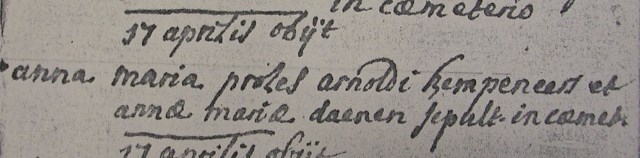 in cæmeterio
17 aprilis obijt
anna maria proles arnoldi kempeneers et
annæ mariæ daenen sepult. in cæmet.
17 aprilis obijt